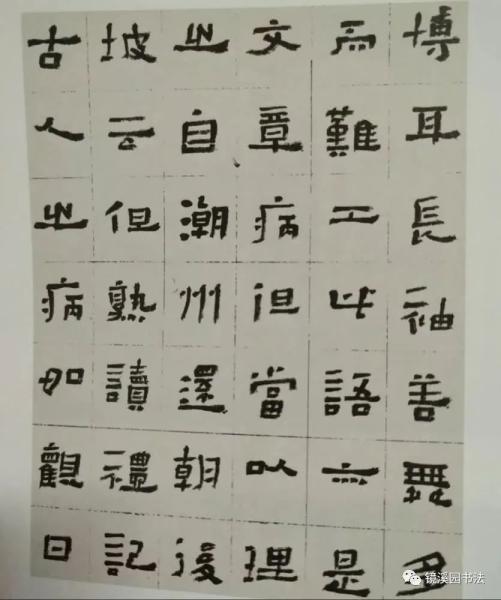 博耳長袖善舞多
而難工此語亦是
文章病但當以理
之自潮州還朝後
坡云但熟讀禮記
古人之病如觀日
镜溪园书法